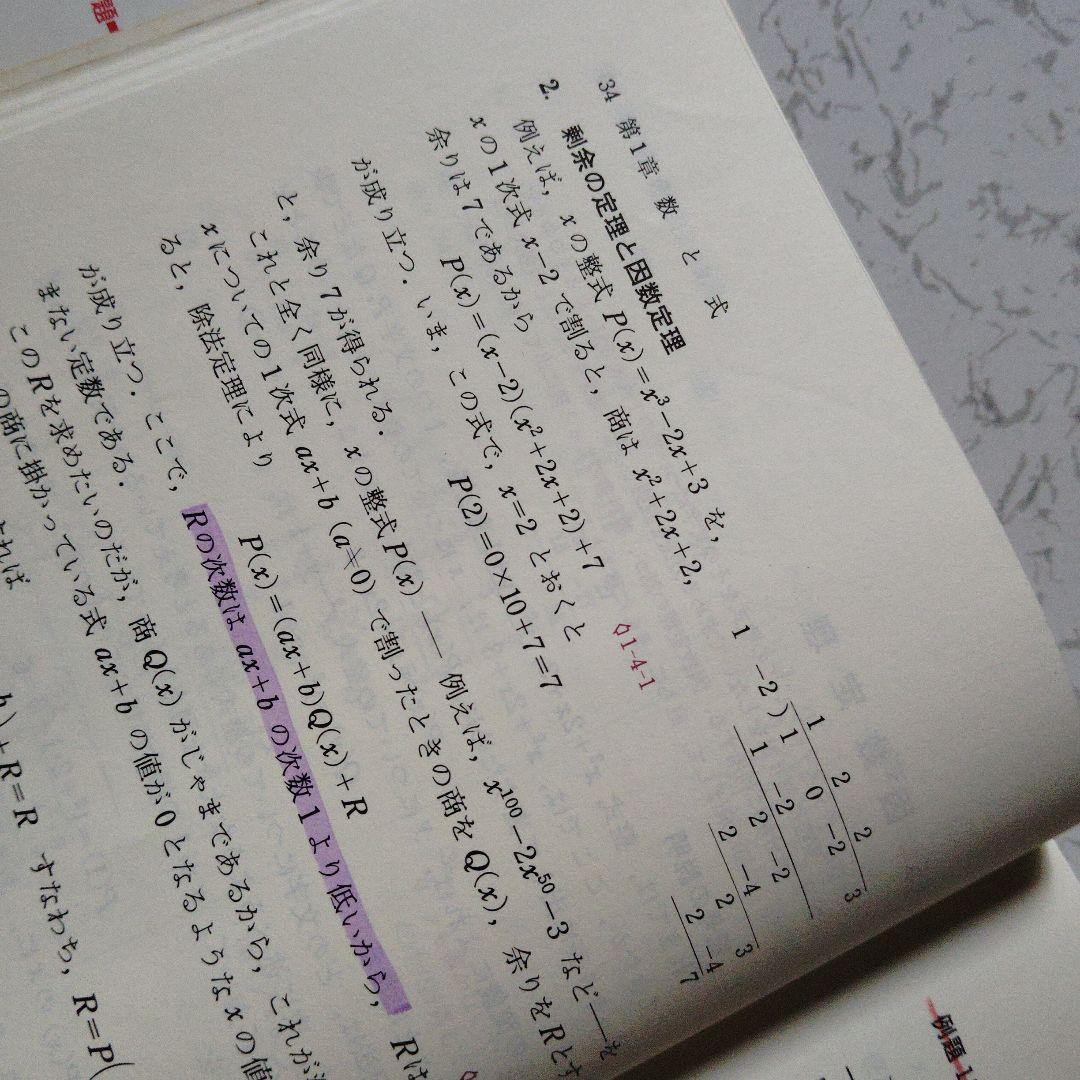 題
34 第1章 数と式
2. 剰余の定理と因数定理
例えば, xの整式 P(x)=x³−2x+3 を,
xの1次式 x−2 で割ると, 商は x²+2x+2,
余りは7であるから
P(x)=(x−2)(x²+2x+2)+7
◊1-4-1
が成り立つ. いま, この式で, x=2 とおくと
P(2)=0×10+7=7
と, 余り7が得られる.
これと全く同様に, xの整式P(x)——例えば, x¹⁰⁰−2x⁵⁰−3 など——を
xについての1次式 ax+b (a≠0) で割ったときの商をQ(x), 余りをRとす
ると, 除法定理により
P(x)=(ax+b)Q(x)+R
が成り立つ. ここで, Rの次数は ax+b の次数1より低いから, Rは
まない定数である.
このRを求めたいのだが, 商Q(x)がじゃまであるから, これが
の商に掛かっている式 ax+b の値が0となるようなxの値
れば
b)+R=R すなわち, R=P(
1 2 2
1 −2 ) 1 0 −2 3
1 −2
2 −2
2 −4
2 3
2 −4
7
例題1